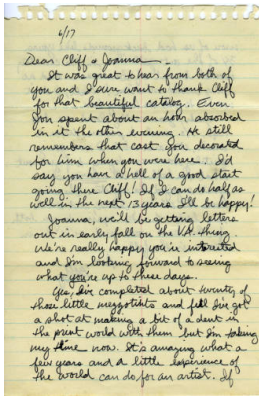 6/17
Dear Cliff & Joanna —
It was great to hear from both of
you and I sure want to thank Cliff
for that beautiful catalog. Even
Jon spent about an hour absorbed
in it the other evening. He still
remembers that cast you decorated
for him when you were here. I'd
say you have a hell of a good start
going there Cliff! If I can do half as
well in the next 13 years I'll be happy!
Joanna, we'll be getting letters
out in early fall on the VA thing.
We're really happy you're interested
and I'm looking forward to seeing
what you're up to these days.
I've completed about twenty of
those little mezzotints and feel I've got
a shot at making a bit of a dent in
the print world with them but I'm taking
my time now. It's amazing what a
few years and a little experience of
the world can do for an artist. If